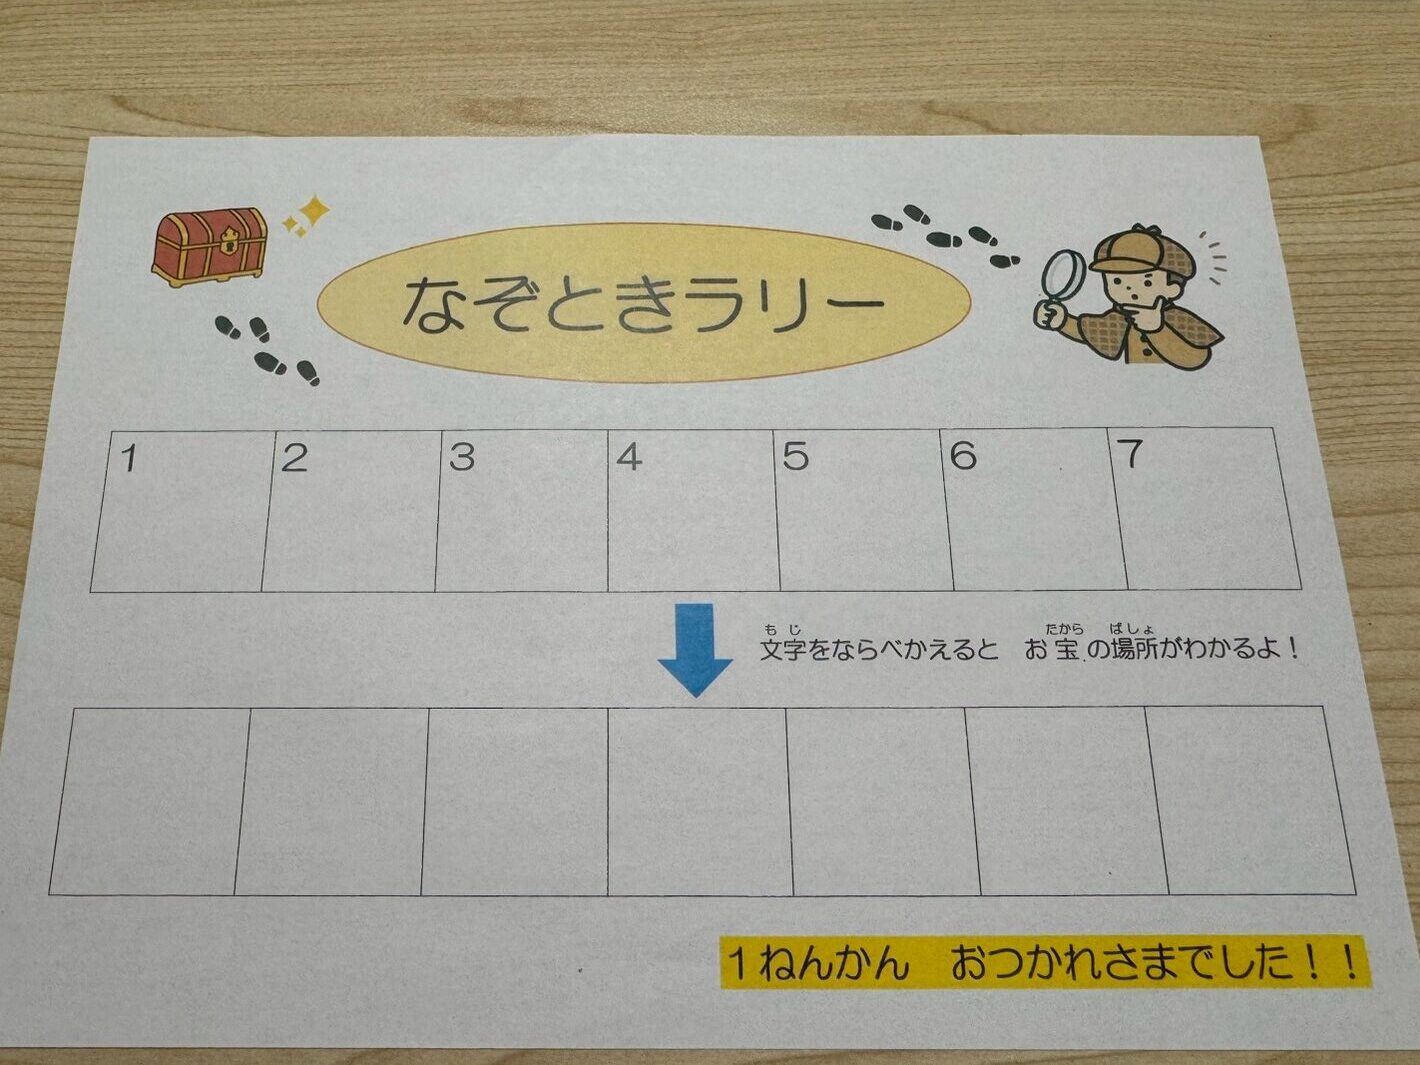 なぞときラリー
1 2 3 4 5 6 7
もじ たから ばしょ
文字をならべかえると お宝の場所がわかるよ！
１ねんかん おつかれさまでした！！